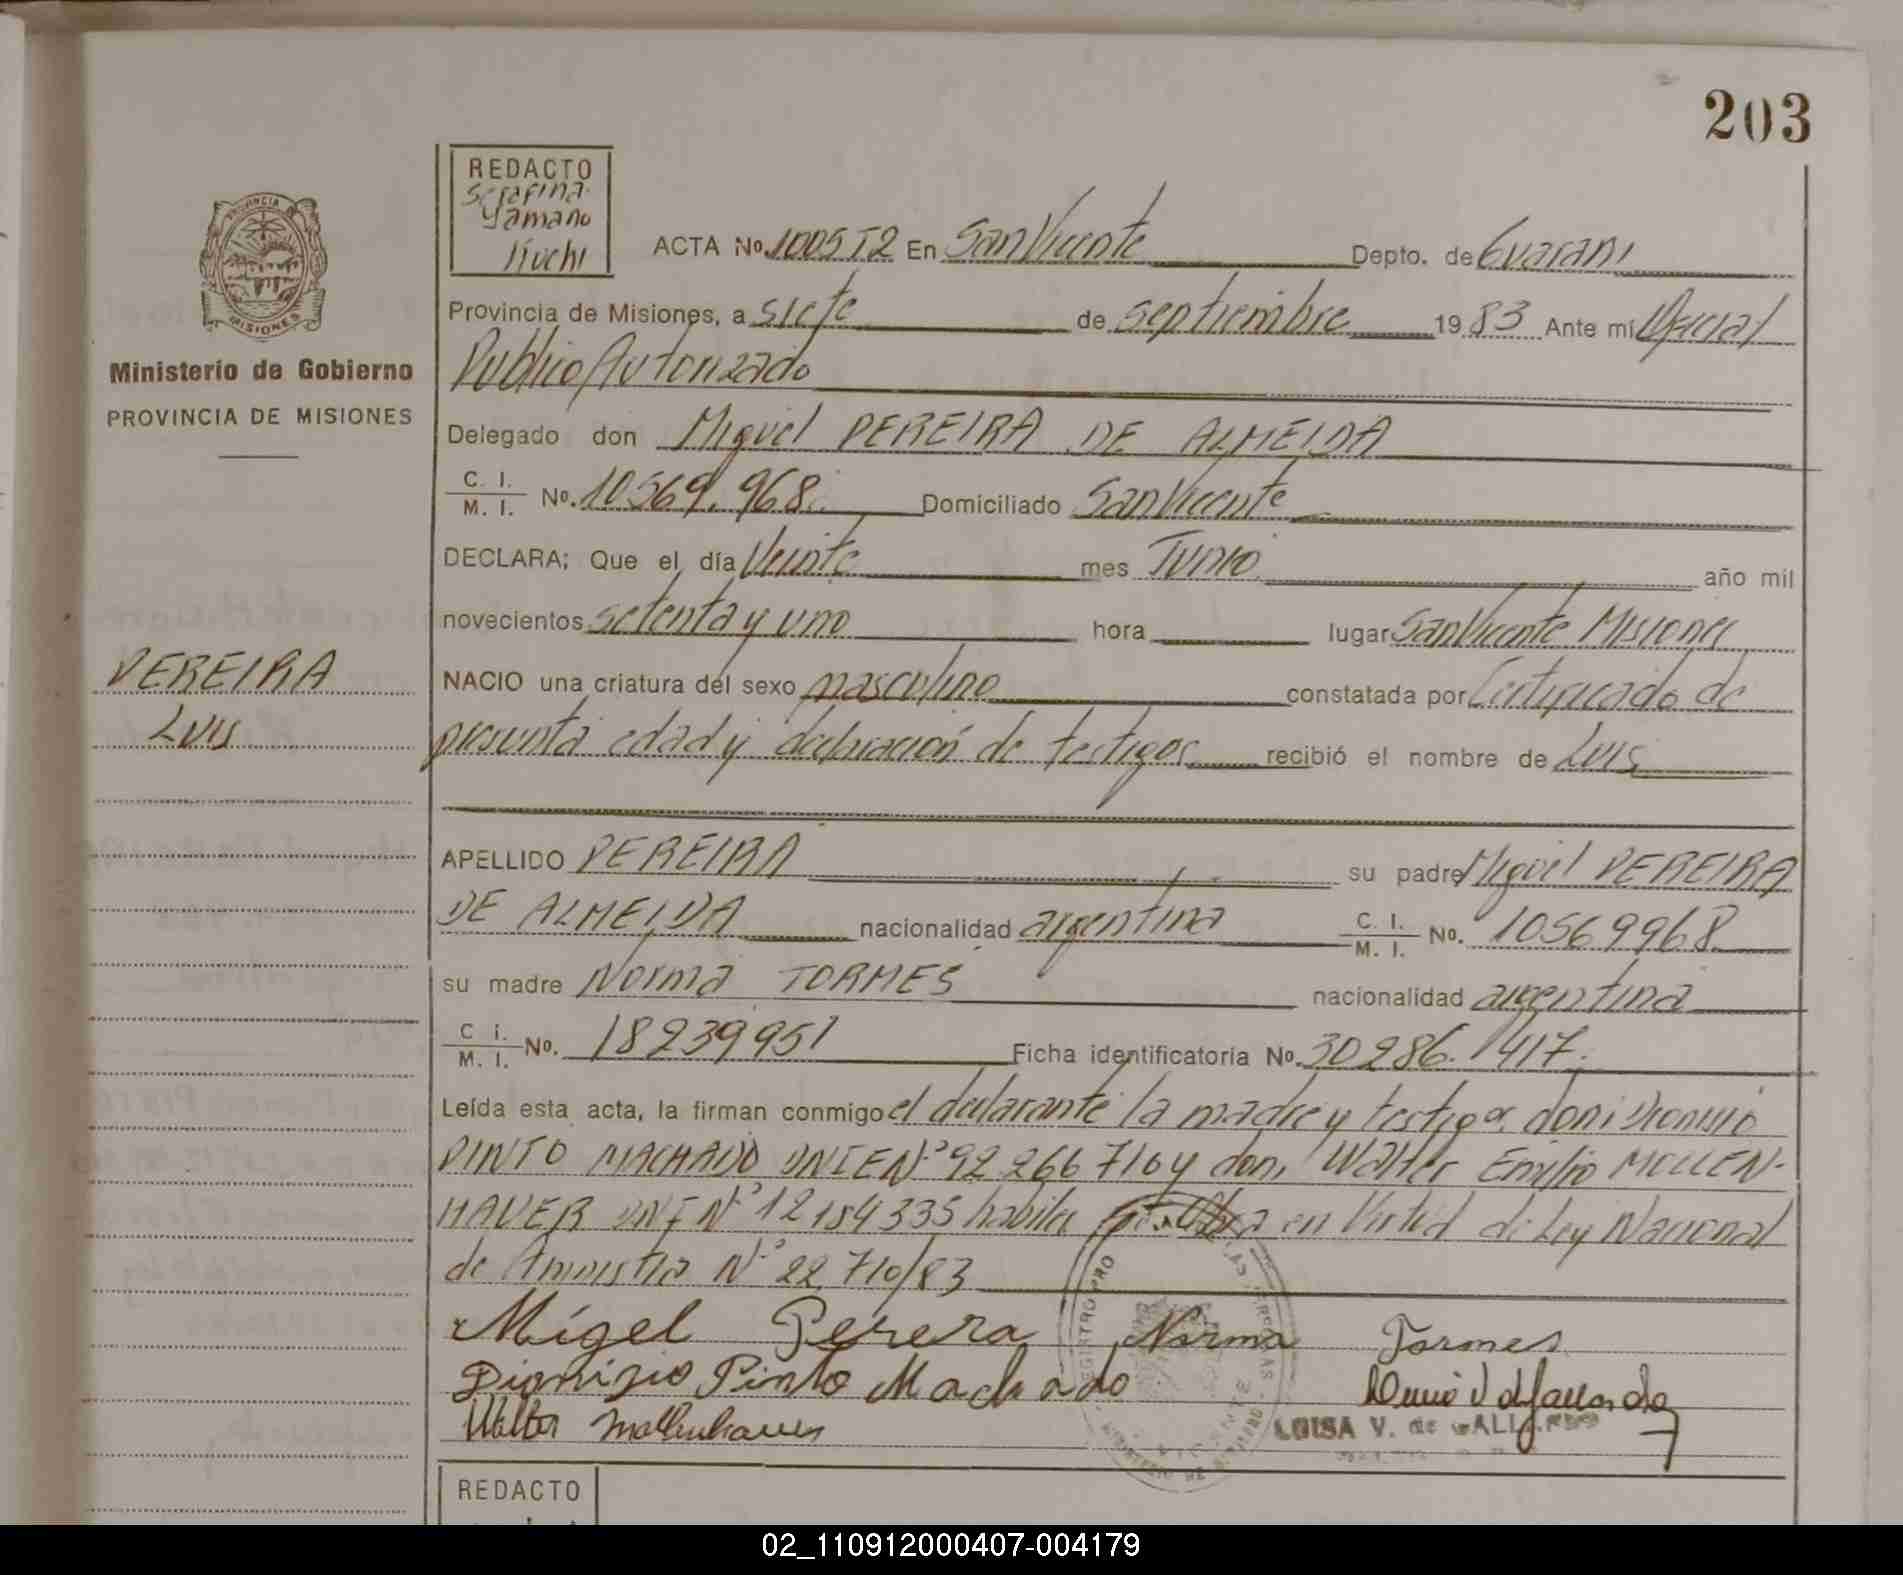 203
REDACTO
Serafina
Yamano
Kuchi
PROVINCIA
MISIONES
Ministerio de Gobierno
PROVINCIA DE MISIONES
ACTA No. 1005 T2 En San Vicente Depto. de Guarani
Provincia de Misiones, a siete de septiembre 1983 Ante mi Oficial
Publico Autorizado
Delegado don Miguel PEREIRA DE ALMEIDA
C. I. / M. I. No. 10569.968. Domiciliado San Vicente
DECLARA; Que el día Veinte mes Junio año mil
novecientos setenta y uno hora lugar San Vicente Misiones
PEREIRA
LUIS
NACIO una criatura del sexo masculino constatada por Certificado de
presunta edad y declaración de testigos recibió el nombre de LUIS
APELLIDO PEREIRA su padre Miguel PEREIRA
DE ALMEIDA nacionalidad argentina C. I. / M. I. No. 10569968
su madre Norma TORMES nacionalidad argentina
C i. / M. I. No. 18239951 Ficha identificatoria No. 30286.417.
Leída esta acta, la firman conmigo el declarante la madre y testigos, don: Dionisio
PINTO MACHADO DNIEN° 92 266 710 y don, Walter Emilio MOLLEN-
HAUER DNI N° 12184335 habiles en Virtud de Ley Nacional
de Amnistia N° 22.710/83
Migel Perera Norma Tormes
Dionizio Pinto Machado
Walter Mollenhauer
LUISA V. de GALLARDO
REDACTO
02_110912000407-004179